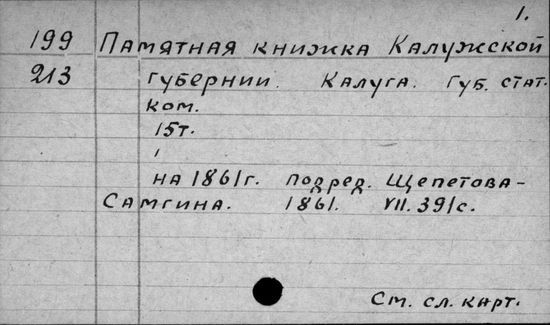 1.
199 Памятная книжка Калужской
213 губернии. Калуга. Губ. стат.
ком.
15т.
1
на 1861г. под ред. Щепетова-
Самгина. 1861. VII. 391с.
См. сл. карт.